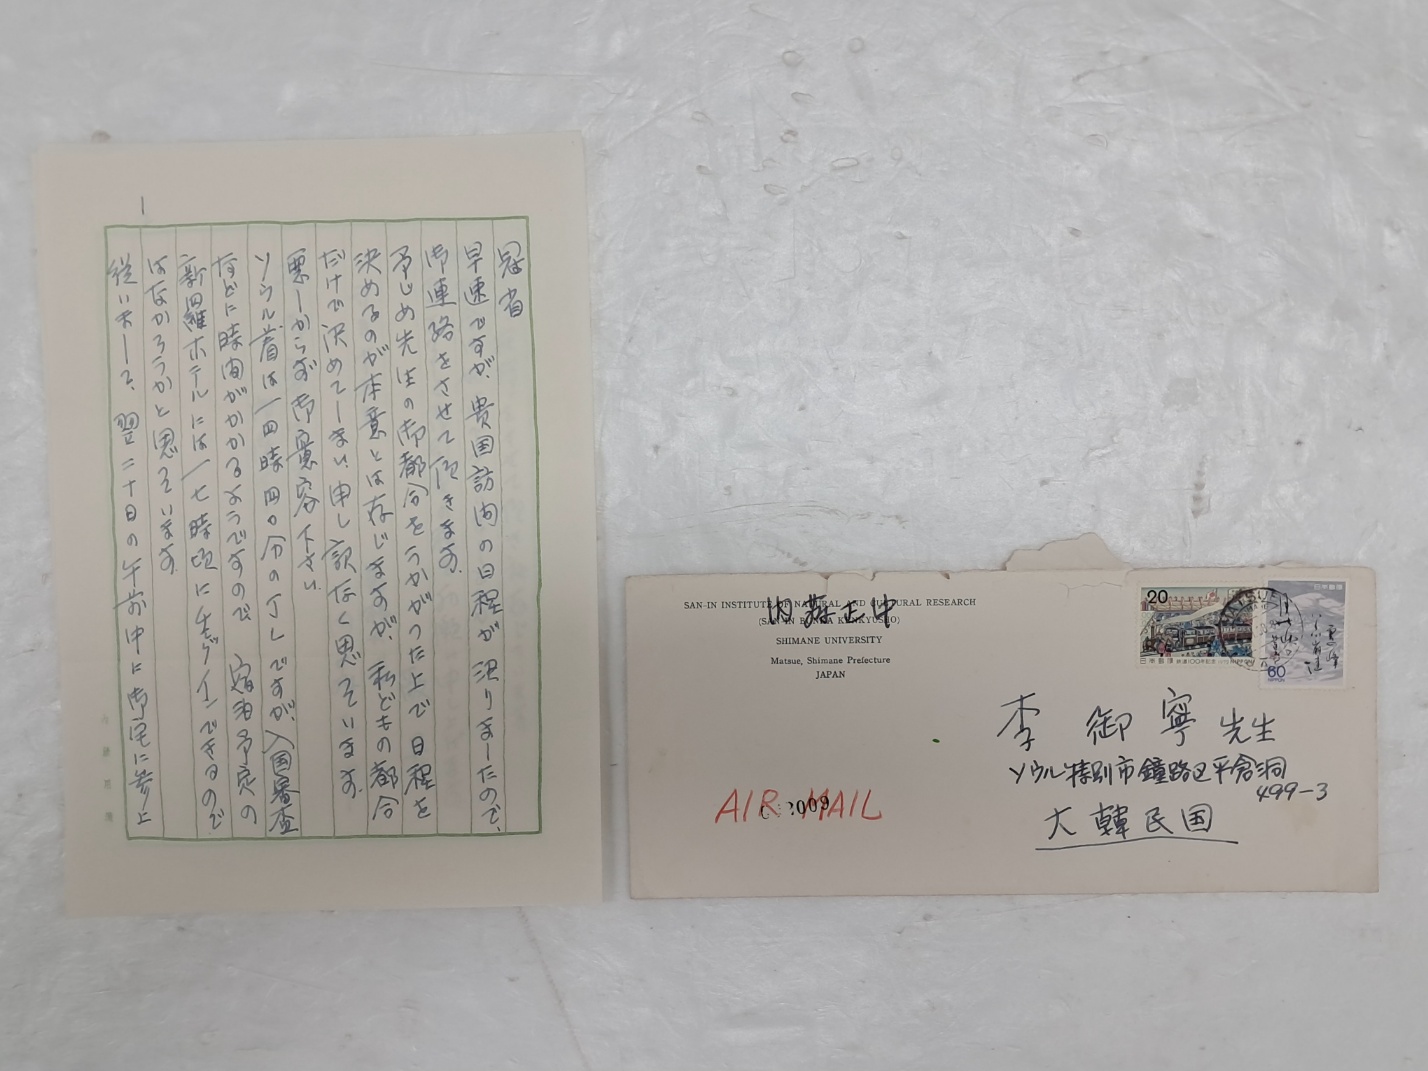 1
冠省
早速ですが、貴国訪問の日程が決りましたので、
御連絡をさせて頂きます。
予じめ先生の御都合をうかがった上で日程を
決めるのが本意とは存じますが、私どもの都合
だけで決めてしまい、申し訳なく思っています。
悪しからず御寛容下さい。
ソウル着は一四時四〇分の予定ですが、入国審査
などに時間がかかるようですので、宿泊予定の
新羅ホテルには一七時頃にチェックインできるので
はなかろうかと思っています。
従いまして、翌二十日の午前中に御宅に参上
SAN-IN INSTITUTE OF NATURAL AND CULTURAL RESEARCH
(SAN-IN BUNKA KENKYUSHO)
SHIMANE UNIVERSITY
Matsue, Shimane Prefecture
JAPAN
内藤正中
20
日本郵便
鉄道100年記念
日本郵便
60
NIPPON
MATSUE
李 御 寧 先生
ソウル特別市鐘路区平倉洞
499-3
大韓民国
AIR MAIL